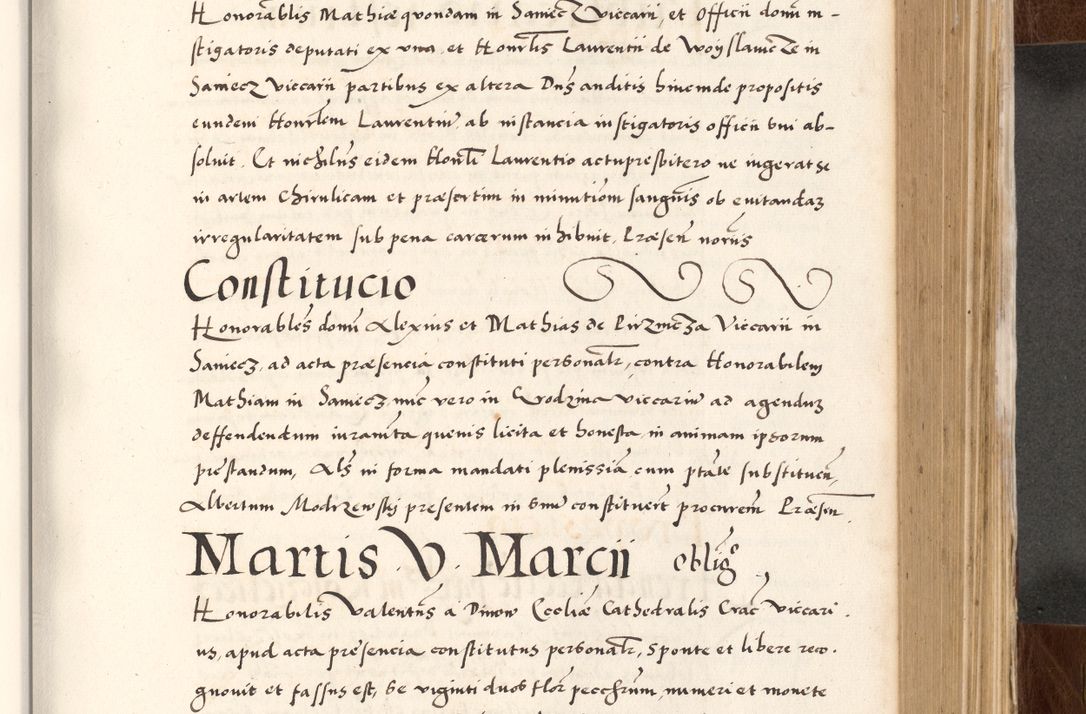 Honorabilis Mathiæ quondam in Saniecz viccarii, et Officii domi in-
stigatoris deputati ex vna, et Honrlis Laurentii de Woyslavicze in
Saniecz viccarii partibus ex altera Dns auditis hincinde propositis
eundem Honrlem Laurentium, ab instancia instigatoris officii sui ab-
soluit. Et nichilus eidem Honrli Laurentio actu presbitero ne ingerat se
in artem Chirulicam et præsertim in minutiom sanguis ob euitandaz
irregularitatem sub pena carcerum inhibuit, Præsen noriis
Constitucio
Honorables domi Alexius et Mathias de Pirzmcza Viccarii in
Saniecz, ad acta præsencia constituti personalr, contra Honorabilem
Mathiam in Saniecz, nunc vero in Grodzina viccarium ad agenduz
deffendendum iuramta queuis licita et honesta in animam ipsorum
prestandum, Als in forma mandati plenissia cum ptate substituen,
Albertum Modrzewskj presentem in sme constituert procurem Præsen
Martis . V . Marcii obligo
Honorabilis Valentus a Dinow Eccliæ Cathedralis Crac Viccari .
us, apud acta presencia constitutus personalr, Sponte et libere reco .
gnouit et fassus est, se viginti duos flor pecchrum, numeri et monete